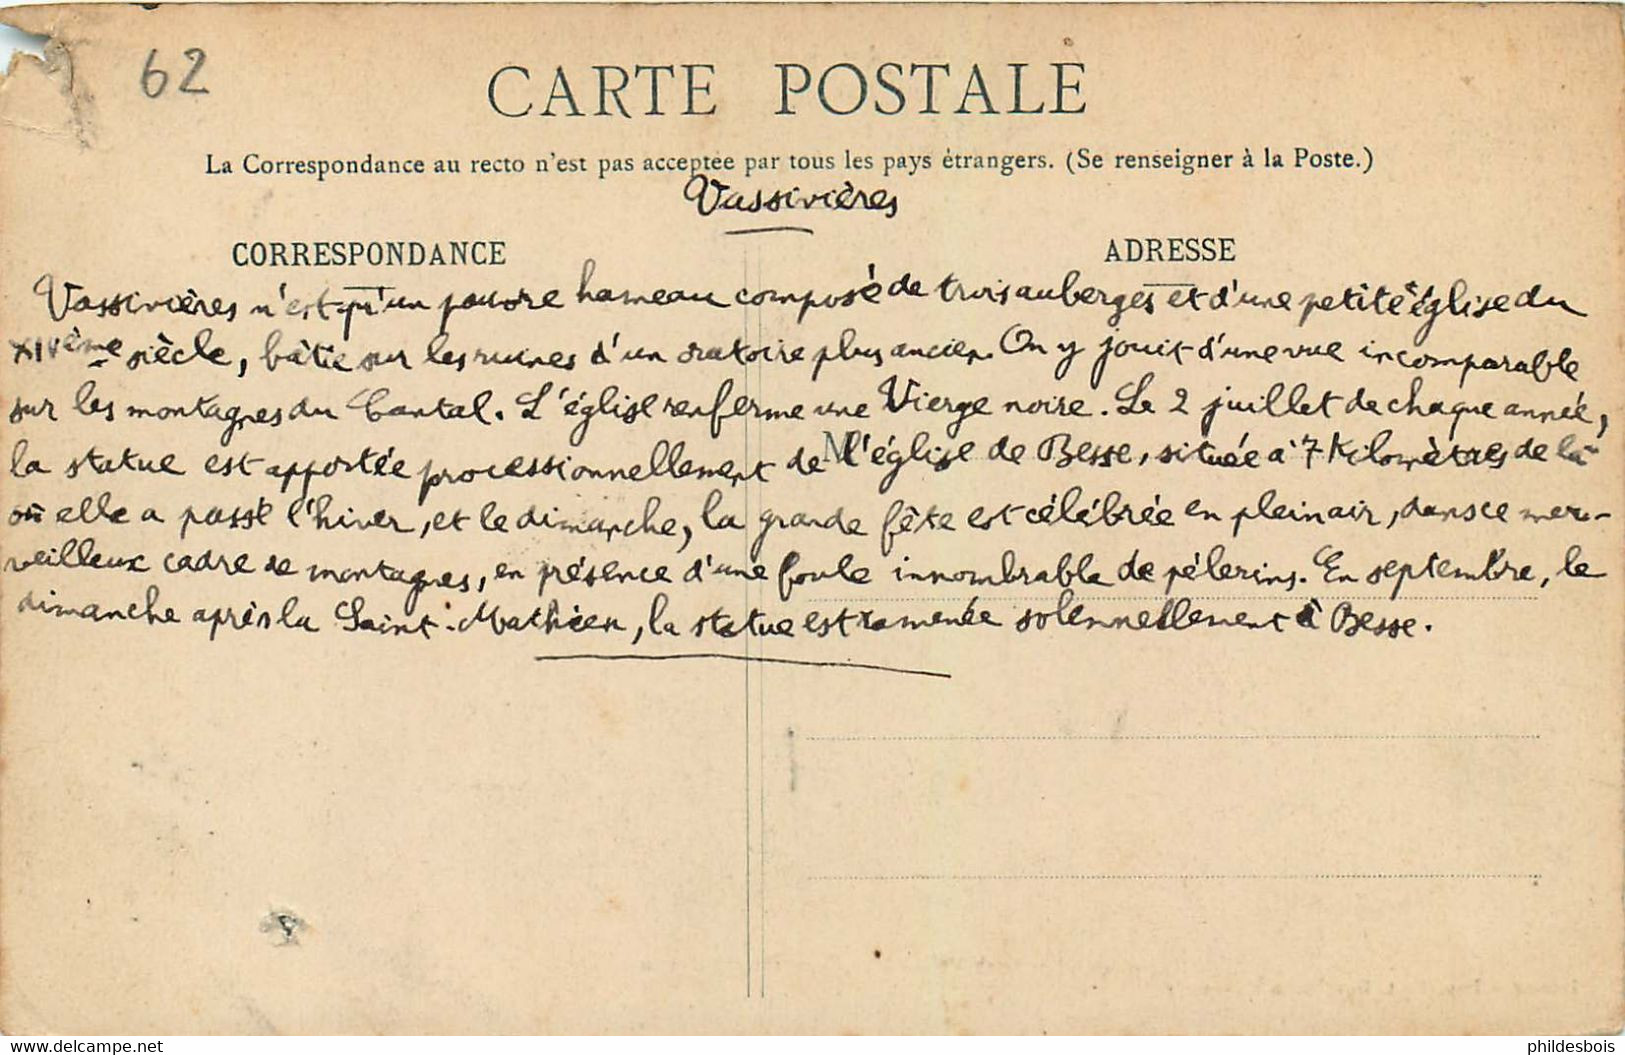 62
CARTE POSTALE
La Correspondance au recto n'est pas acceptée par tous les pays étrangers. (Se renseigner à la Poste.)
Vassivières
CORRESPONDANCE
ADRESSE
Vassivières n'est qu'un pauvre hameau composé de trois auberges et d'une petite église du
XIVème siècle, bâtie sur les ruines d'un oratoire plus ancien. On y jouit d'une vue incomparable
sur les montagnes du Cantal. L'église renferme une Vierge noire. Le 2 juillet de chaque année,
la statue est apportée processionnellement de l'église de Besse, située à 7 kilomètres de là
M
où elle a passé l'hiver, et le dimanche, la grande fête est célébrée en plein air, dans ce mer-
veilleux cadre de montagnes, en présence d'une foule innombrable de pélerins. En septembre, le
dimanche après la Saint-Mathieu, la statue est ramenée solennellement à Besse.
delcampe.net
phildesbois